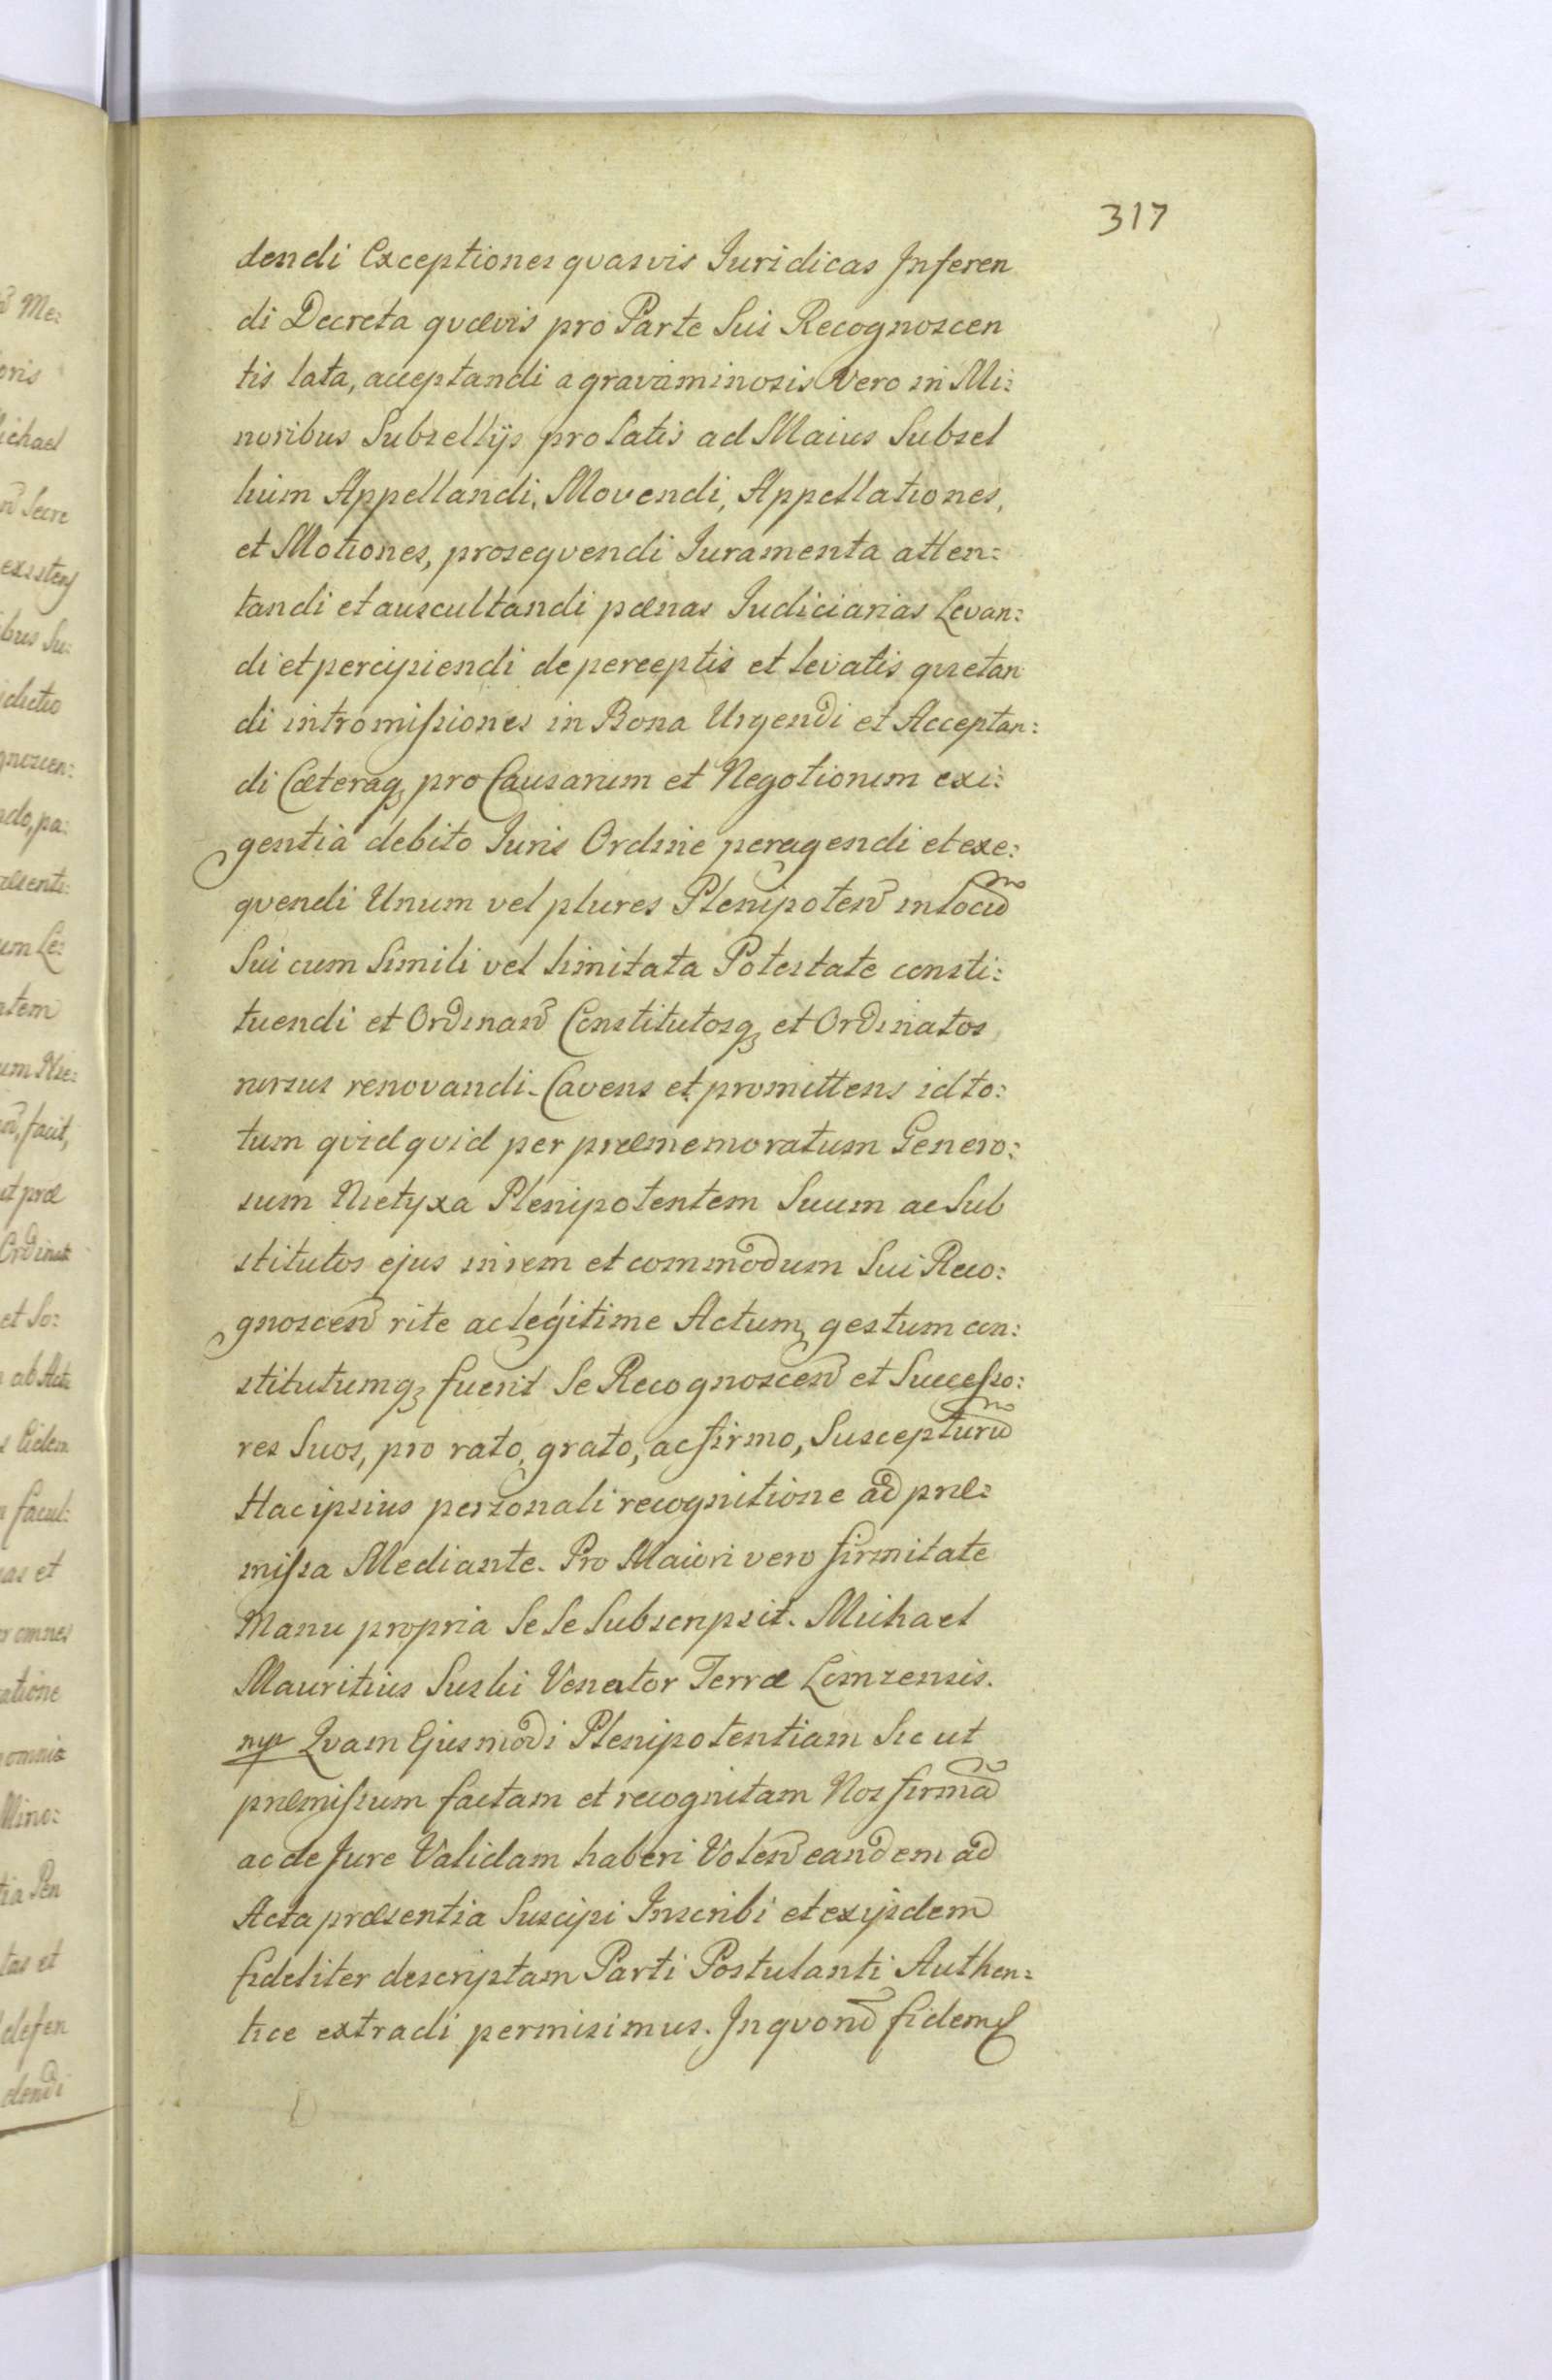 317
dendi Exceptiones qvasvis Iuridicas Inferen
di Decreta qvævis pro Parte Sui Recognoscen
tis lata, acceptandi a gravaminosis Vero in Mi:
noribus Subsellÿs prolatis ad Maius Subsel
lium Appellandi, Movendi, Appellationes,
et Motiones, proseqvendi Iuramenta atten:
tandi et auscultandi pænas Iudiciarias Levan:
di et percipiendi de perceptis et levatis qvietan
di intromissiones in Bona Urgendi et Acceptan:
di Cæteraq₃ pro Causarum et Negotiorum exi:
gentia debito Iuris Ordine peragendi et exe:
qvendi Unum vel plures Plenipoten̄ in locū
Sui cum Simili vel limitata Potestate consti:
tuendi et Ordinan̄ Constitutosq₃ et Ordinatos
rursus renovandi. Cavens et promittens id to:
tum qvidqvid per præmemoratum Genero:
sum Nietyxa Plenipotentem Suum ac Sub
stitutos ejus in rem et commodum Sui Reco:
gnoscen̄ rite ac legitime Actum, gestum con:
stitutumq₃ fuerit Se Recognoscen̄ et Successo:
res Suos, pro rato, grato, ac firmo, Suscepturū
Hac ipsius personali recognitione ad præ:
missa Mediante. Pro Maiori vero firmitate
Manu propria Se Se Subscripsit. Michael
Mauritius Suski Venator Terræ Lomzensis.
mp Qvam Ejusmodi Plenipotentiam Sic ut
præmissum factam et recognitam Nos firmā
ac de Jure Validam haberi Volen̄ eandem ad
Acta præsentia Suscipi Inscribi et ex ijsdem
fideliter descriptam Parti Postulanti Authen:
tice extradi permisimus. In qvor̄ fidem